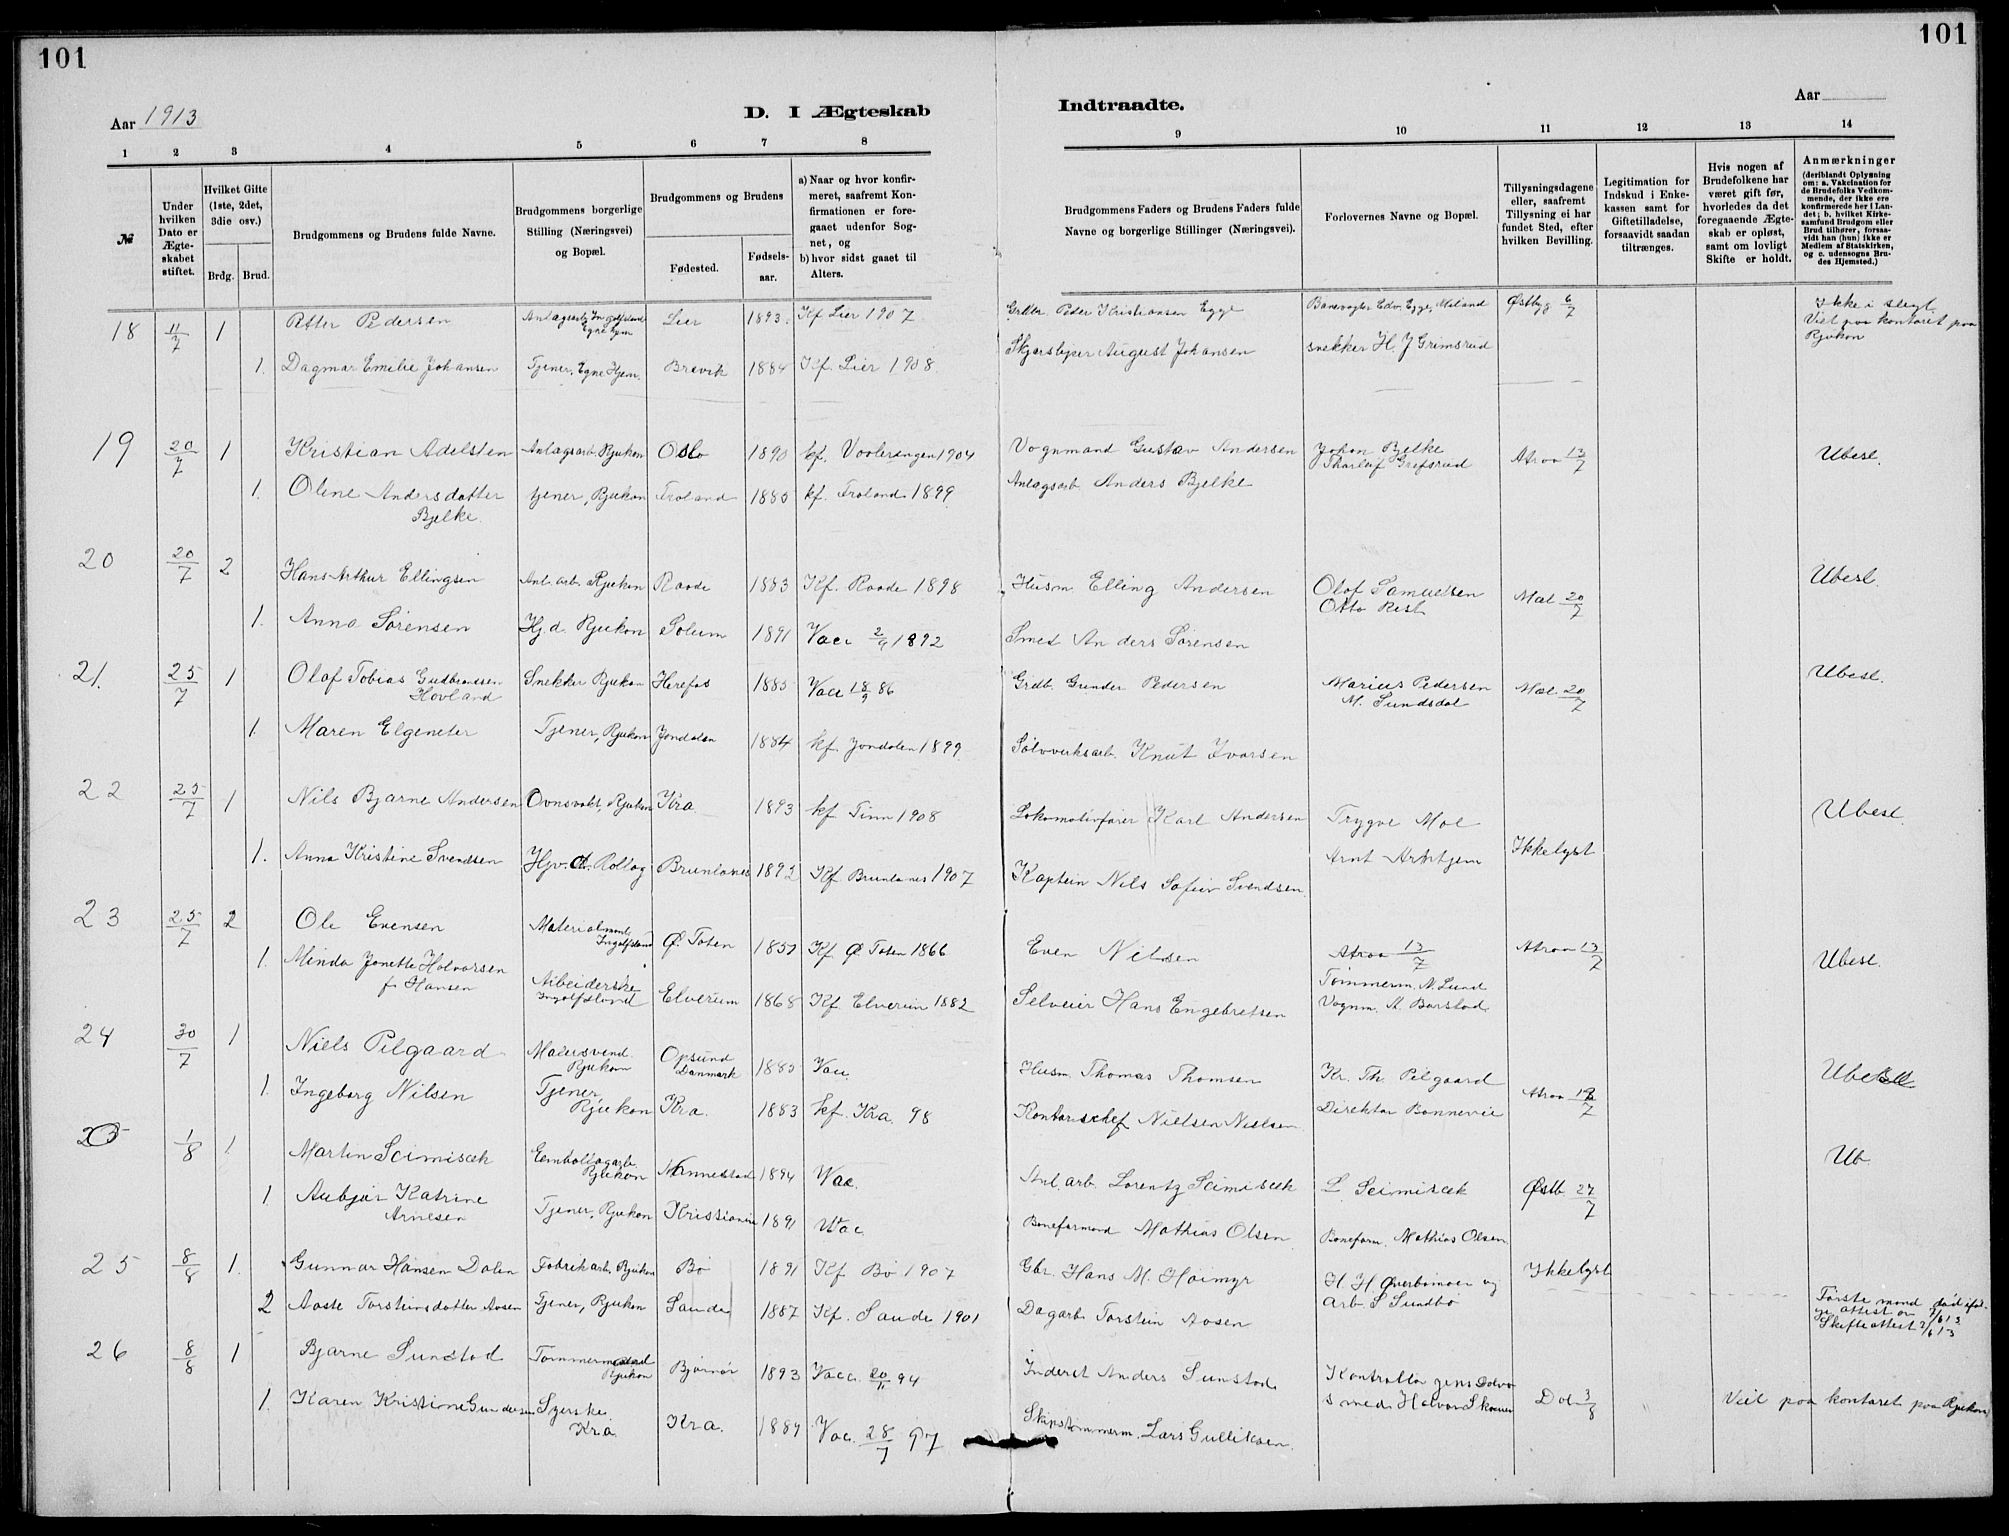 101
101
Aar 1913
D. I Ægteskab
Indtraadte.
Aar
1 2 3 4 5 6 7 8 9 10 11 12 13 14
№
Under hvilken Dato er Ægteskabet stiftet.
Hvilket Gifte (1ste, 2det, 3die osv.)
Brdg. Brud.
Brudgommens og Brudens fulde Navne.
Brudgommens borgerlige Stilling (Næringsvei) og Bopæl.
Brudgommens og Brudens
Fødested.
Fødselsaar.
a) Naar og hvor konfirmeret, saafremt Konfirmationen er foregaaet udenfor Sognet, og
b) hvor sidst gaaet til Alters.
Brudgommens Faders og Brudens Faders fulde Navne og borgerlige Stillinger (Næringsvei).
Forlovernes Navne og Bopæl.
Tillysningsdagene eller, saafremt Tillysning ei har fundet Sted, efter hvilken Bevilling.
Legitimation for Indskud i Enkekassen samt for Giftetilladelse, forsaavidt saadan tiltrænges.
Hvis nogen af Brudefolkene har været gift før, hvorledes da det foregaaende Ægteskab er opløst, samt om lovligt Skifte er holdt.
Anmærkninger (deriblandt Oplysning om: a. Vakcination for de Brudefolks Vedkommende, der ikke ere konfirmerede her i Landet; b. hvilket Kirkesamfund Brudgom eller Brud tilhører, forsaavidt han (hun) ikke er Medlem af Statskirken, og c. udensogns Brudes Hjemsted.)
18 11/7 1 Petter Pedersen Anlagsarb. Ingolfsland Egne hjem Lier 1893. Kf Lier 1907 Grdbr. Peder Kristiansen Egge Banevogter Edv. Egge, Mæland Østbyg 6/7 Ikke i slegt. Viet paa kontoret paa Rjukan
1. Dagmar Emilie Johansen Tjener, Egne Hjem. Brevik 1884 Kf. Lier 1908. August Johansen snekker H. J Grimsrud
19 20/7 1 Kristian Adelsten Anlagsarb. Rjukan Oslo 1890 kf. Vaalerengen 1904 Vognmand Gustav Andersen Johan Bjelke Tharleif Grefsrud Atraa 13/7 Ubesl.
1. Oline Andersdatter Bjelke. tjener, Rjukan Froland 1885 kf. Froland 1899. Anlagsarb. Anders Bjelke
20 20/7 2 Hans Arthur Ellingsen Anl. arb. Rjukan Raade 1883 Kf. Raade 1898 Husm. Elling Andersen Olof Samuelsen Otto Rist Mæl 20/7 Ubesl.
1. Anna Sørensen Hj. d. Rjukan Solum 1891 Vacc 2/9 1892 Smed Anders Sørensen
21. 25/7 1 Olaf Tobias Gudbrandsen Hovland Snekker Rjukan Herefos 1885 Vacc 18/9 86 Grdb. Gunder Pedersen Marius Pedersen M. Sundsdal Mæl 20/7 Ubesl.
1. Maren Elgeneter Tjener, Rjukan Jondalen 1884 kf. Jondalen 1899. Sølvverksarb. Knut Ivarsen
22 25/7 1 Nils Bjarne Andersen Ovnsvakt, Rjukan Kra. 1893 kf Tinn 1908 Lokomotivfører Karl Andersen Trygve Moe Ubesl.
1. Anna Kristine Svendsen Hjv. d. Rollag Brunlanes 1892 Kf. Brunlanes 1907 Kaptein Nils Sofus Svendsen. Arnt Arntzen Ikke lyst
23 25/7 2 Ole Evensen Materialmand, Ingolfsland Ø. Toten 1851 Kf. Ø. Toten 1866 Even Nilsen Atraa 13/7 Atraa 13/7 Ubesl.
1. Minda Jonette Halvorsen f. Hansen Arbeiderske Ingolfsland Elverum 1868 Kf. Elverum 1882 Selveier Hans Engebretsen Tømmerm. N. Lund Vognm. A. Barstad
24 30/7 1 Niels Pilgaard Malersvend. Rjukan Danmark 1885 Vac. Husm. Thomas Thomsen Kr. Th. Pilgaard Ubesl
1. Ingeborg Nilsen Tjener, Rjukan Kra. 1883 kf. Kra. 98 Kontorschef Nielsen Nielsen. Direktør Bonnevie Atraa 13/7
25 1/8 1 Martin Scimiscek Emballagearb. Rjukan Nannestad 1894 Vac. Anl. arb. Lorentz Scimiscek L. Scimiscek Østb. 27/7 Ub.
1. Aubjør Katrine Arnesen Tjener, Rjukan Kristiania 1891 Vac Baneformand Mathias Olsen Baneform. Mathias Olsen.
25 8/8 1. Gunnar Hansen Dalen Fabrikarb. Rjukan Bø 1891 Kf Bø 1907 Gbr. Hans M. Høimyr H. H Øverbømoen og arb. S Sundbø Ikke lyst
2 Aaste Torsteinsdatter Aasen Tjener, Rjukan Saude 1887 Kf. Saude 1901 Dagarb. Torstein Aasen Første mand død ifølge attest av Skifteattest 2/6 13
26 8/8 1 Bjarne Sunstad Tømmermand Rjukan Bjørnør 1893 Vacc. 20/11 94 Inderst Anders Sunstad. Kontrollør Jens Dalva
1. Karen Kristine Gundersen Syerske Kra Kra. 1889 Vac. 28/7 97 Skipstømmerm. Lars Gulliksen. smed Halvor Skaven Dal 3/8 Viet paa kontoret paa Rjukan